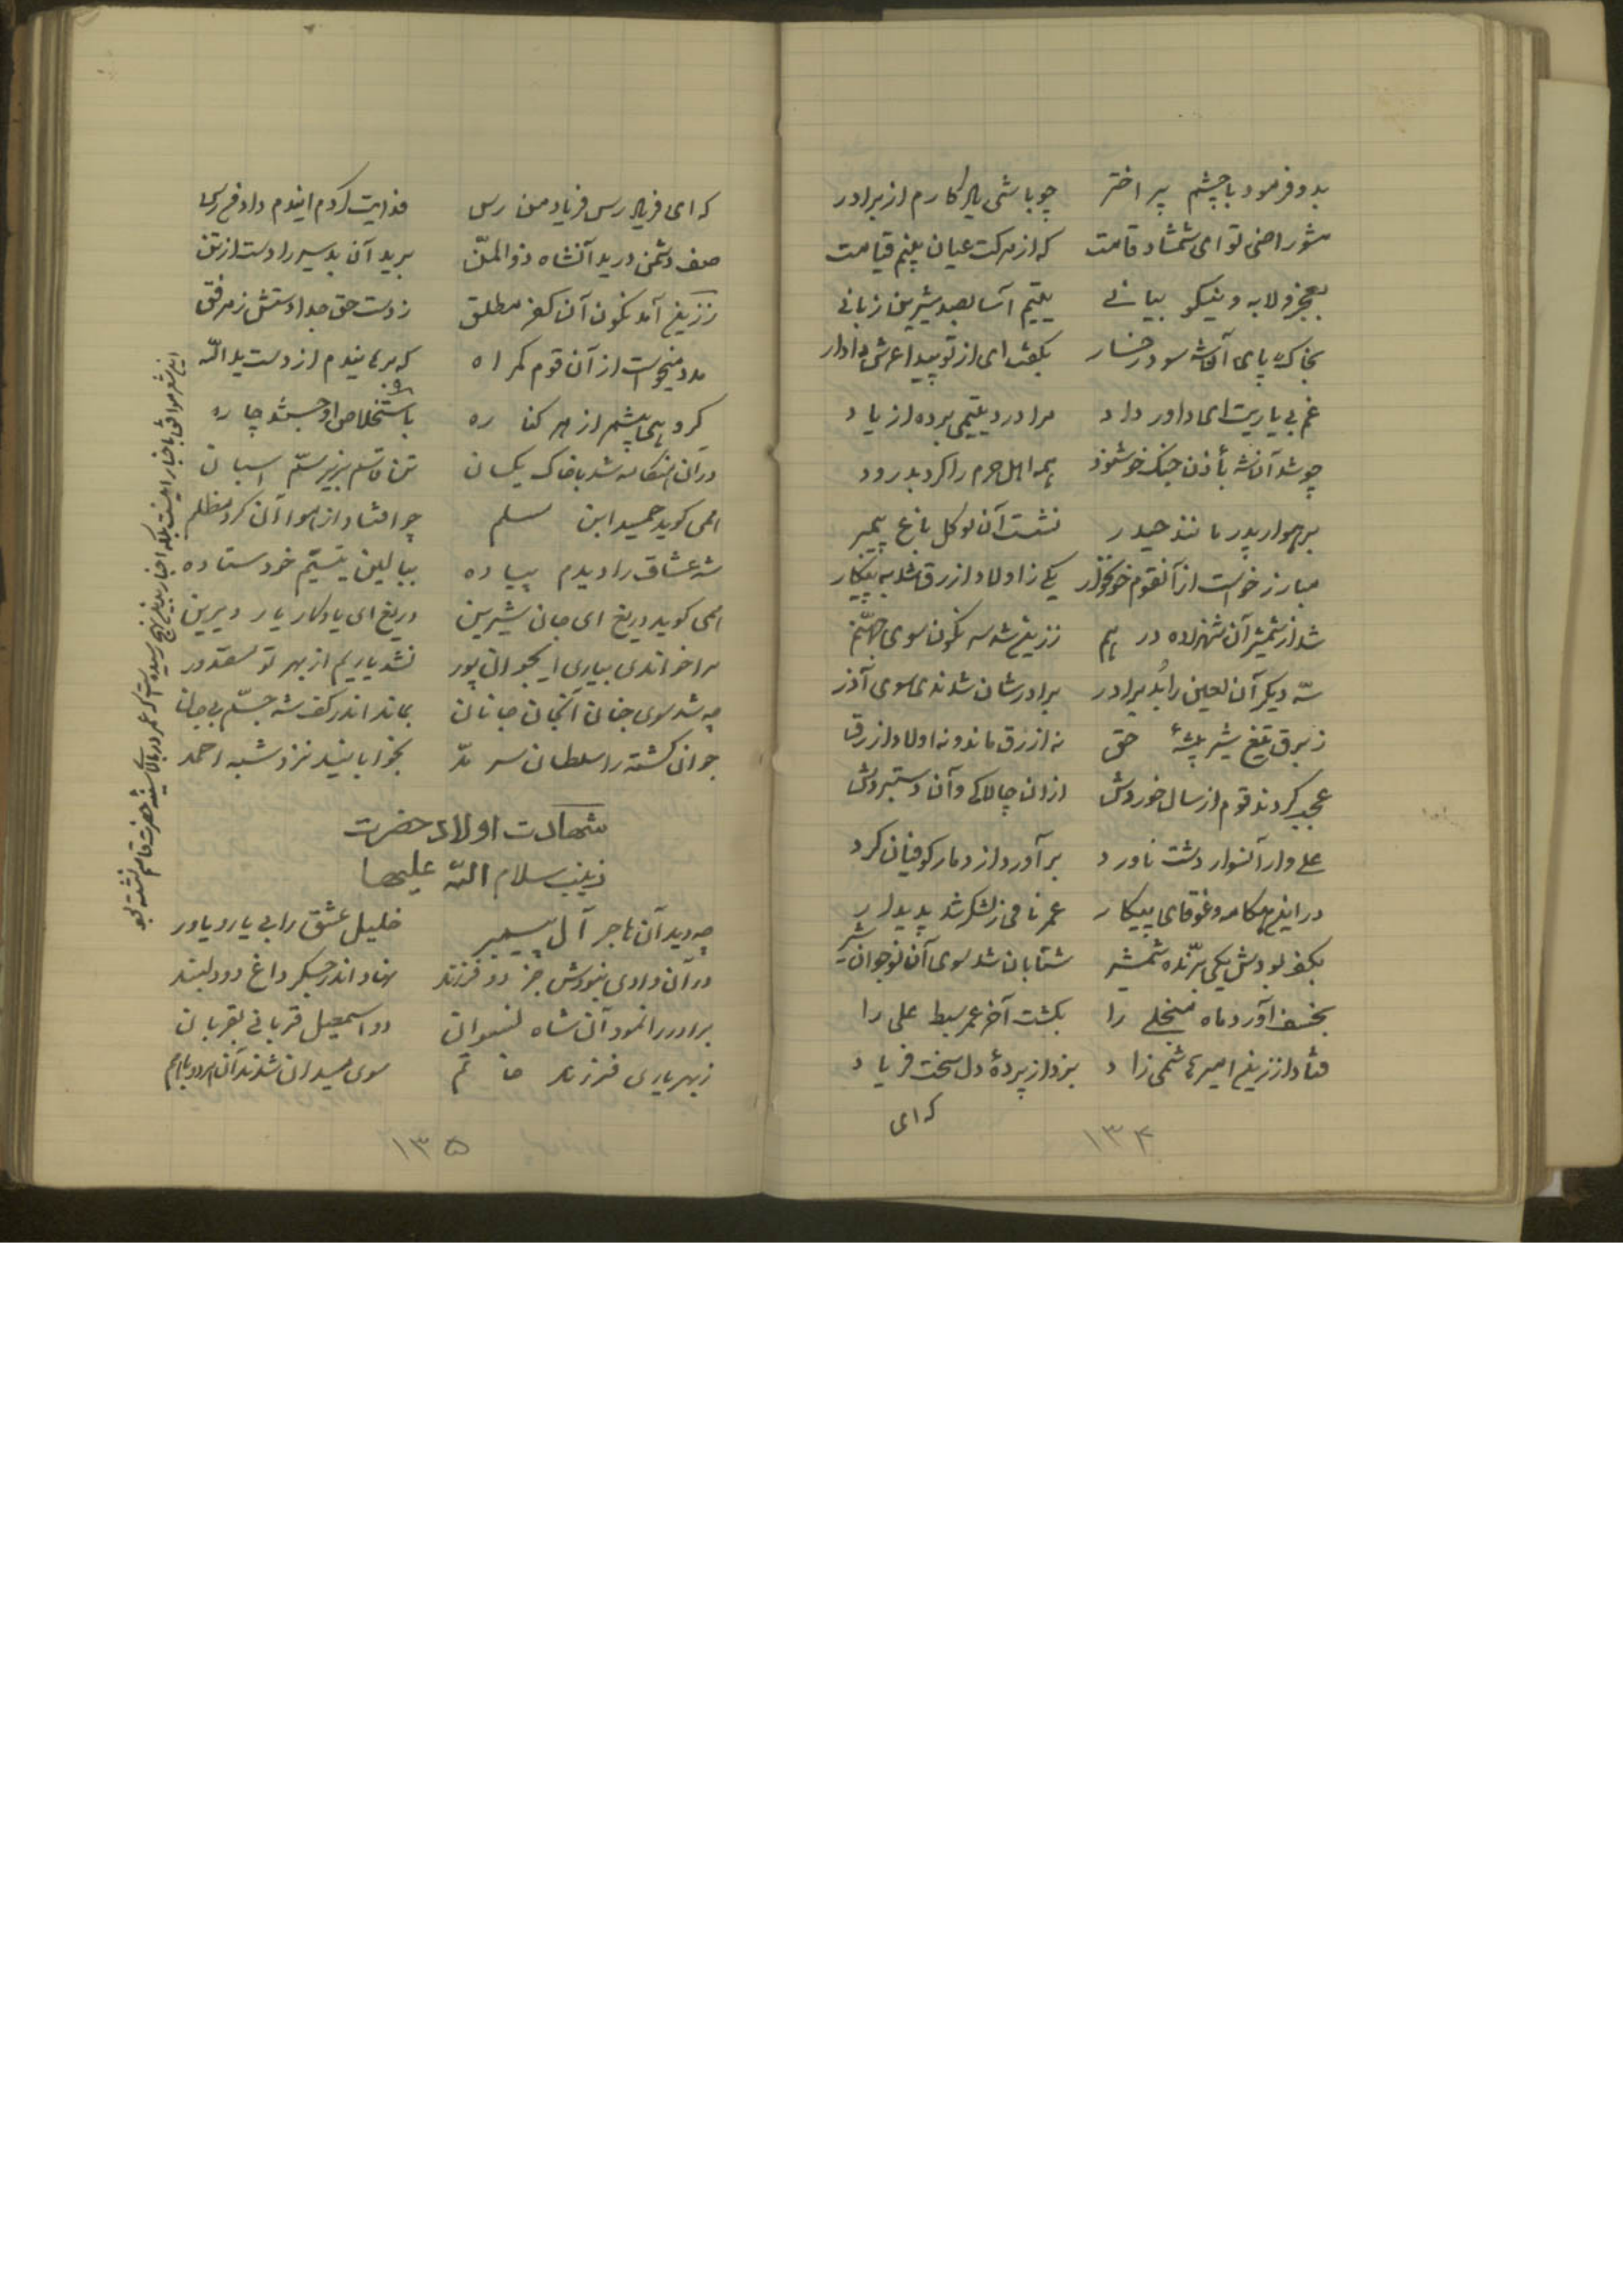 بدو فرمود با چشم پر اختر چو باشی یادگارم از برادر
مشو راضی تو ای شمشاد قامت که از مرکت عیان بینم قیامت
بعجز و لابه و نیکو بیانی یتیم آسا بصد شیرین زبانی
بخاک پای آن شه سود رخسار بگفت ای از تو پیدا عرش دادار
غم بی یاریت ای داور داد مرا درد یتیمی برده از یاد
چو شد آن شه بأذن جنک خوشنود همه اهل حرم را کرد بدرود
برهوار پدر مانند حیدر نشست آن نو کل باغ پیمبر
مبارز خواست از آنقوم خونخوار یکی ز اولاد ازرق شد به پیکار
شد از شمشیر آن شهزاده درهم ز زین شد سرنکون سوی جهنم
سه دیکر آن لعین را بد برادر برادرشان شدندی سوی آذر
ز برق تیغ شیر بیشهٔ حق نه ازرق ماند و نه اولاد ازرق
عجب کردند قوم از سال خوردش از آن چالاکی و آن دستبردش
علی وار آنسوار دشت ناورد بر آورد از دمار کوفیان کرد
در این هنکامه و غوغای پیکار عمر نامی ز لشکر شد پدیدار
بکف بودش یکی برّنده شمشیر شتابان شد سوی آن نوجوان شیر
بخسف آورد ماه منجلی را بکشت آخر عمر سبط علی را
فتاد از زین امیر هاشمی زاد بزد از پردهٔ دل سخت فریاد
که ای
۱۳۴
که ای فریاد رس فریاد من رس فدایت کردم ایندم
صف دشمن درید آنشاه ذوالمنّ برید آن بد سیر را دست از تن
ز زین آمد نکون آن کفر مطلق ز دست حق جدا دستش ز مرفق
مدد میخواست از آن قوم کمراه که برهانیدم از دست ید الله
کروهی از هر کناره باستخلاص او جستند چاره
در آن هنکامه شد با خاک یکسان تن قاسم بزیر سمّ اسبان
همی کوید حمید ابن مسلم چو افتاد از هوا آن کرد مظلم
شه عشاق را دیدم پیاده ببالین یتیم خود ستاده
همی کوید دریغ ای جان شیرین دریغ ای یادکار یار دیرین
مرا خواندی بیاری ایجوان پور نشد یاریم از بهر تو مقدور
چه شد سوی جنان آنجان جانان بماند اندر کف شه جسم بی جان
جوان کشته را سلطان سرمد بخوابانید نزد شبه احمد
شهادت اولاد حضرت
زینب سلام الله علیها
چه دید آن هاجر آل پیمبر خلیل عشق را بی یار و یاور
در آن وادی نبودش جز دو فرزند نهاد اندر جکر داغ دو دلبند
برادر را نمود آن شاه نسوان دو اسمعیل قربانی بقربان
ز بهر یاری فرزند خاتم سوی میدان شدند آن هر دو باهم
۱۳۵
این شعر موافق با اخبار نیست بلکه اخبار بدین نهج رسیده است که عمر در بالای سینه حضرت قاسم نشسته بود